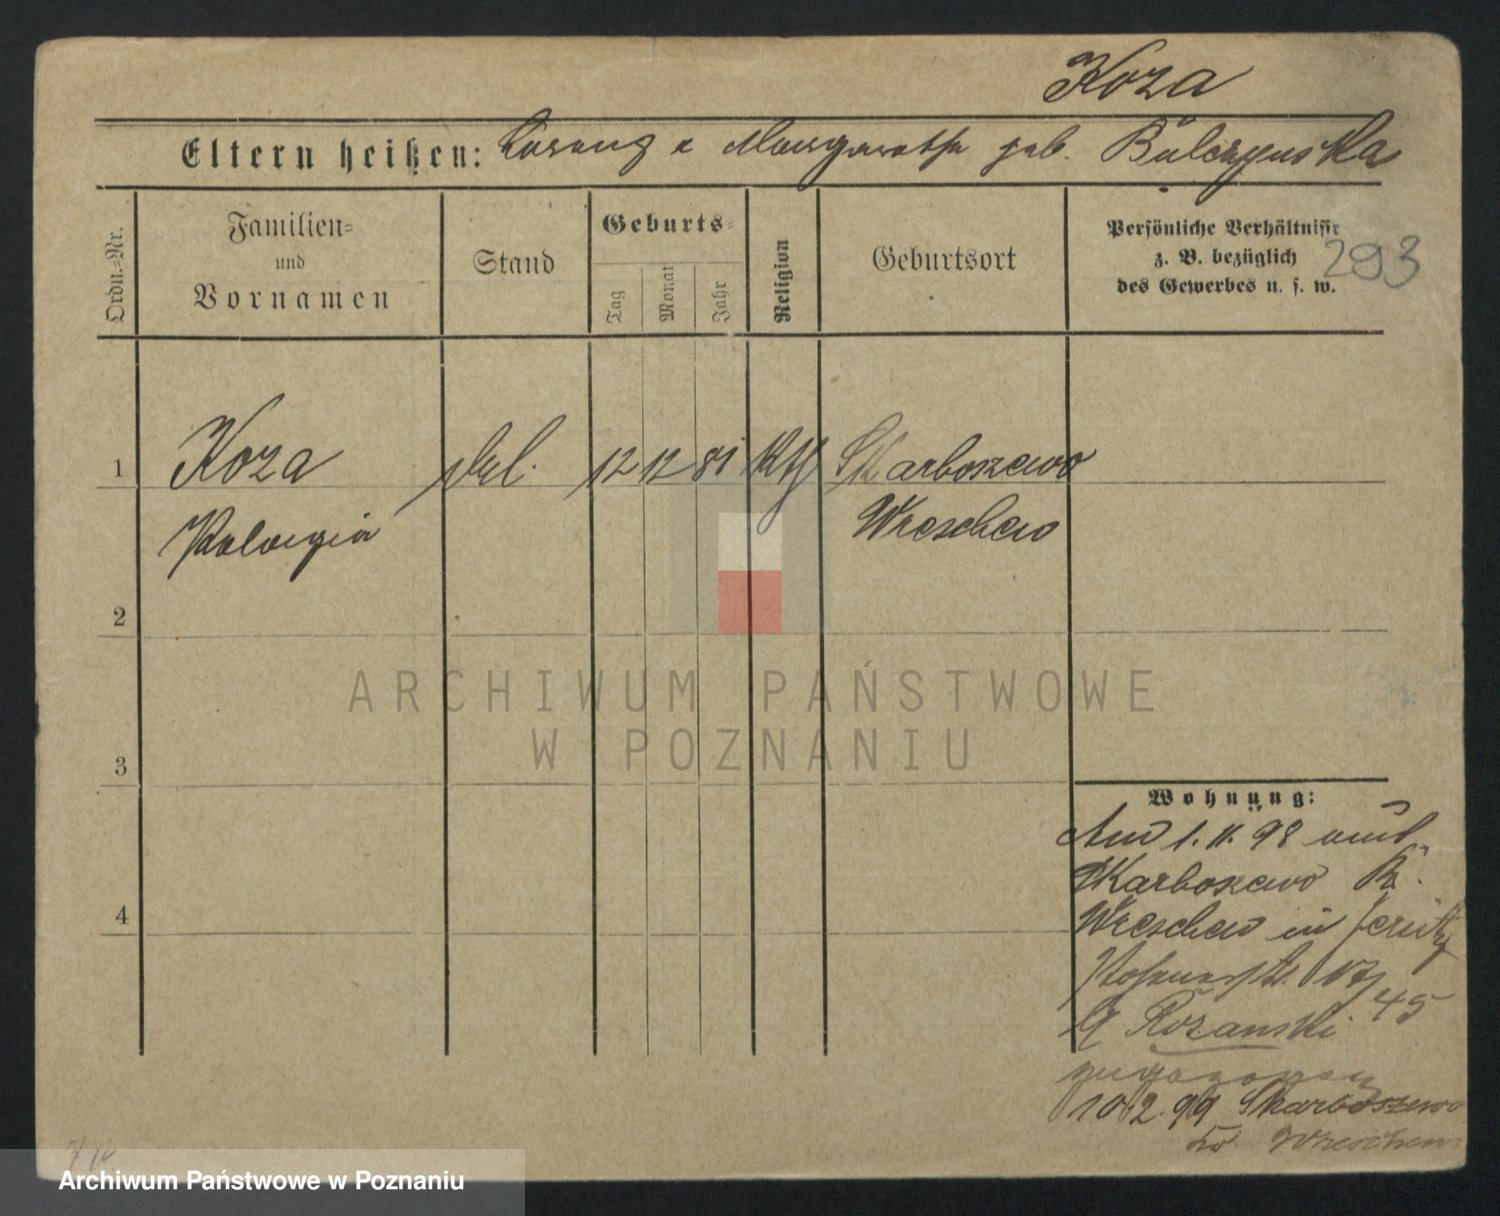 Koza
Eltern heißen: Lorenz u Margaretha geb. Bulczynska
Ordn.-Nr.
Familien- und Vornamen
Stand
Geburts-
Tag
Monat
Jahr
Religion
Geburtsort
Persönliche Verhältnisse
z. B. bezüglich
des Gewerbes u. s. w.
293
1 Koza 12 12 81 Kth Skarboszewo
Pelagia Wreschen
2
3
4
Wohnung:
Am 1.11.98 aus
Skarboszewo Kr.
Wreschen in Jersitz
17/45
Rozanski
zugezogen
10/2.99 Skarboszewo
Kr. Wreschen
ARCHIWUM PAŃSTWOWE
W POZNANIU
Archiwum Państwowe w Poznaniu